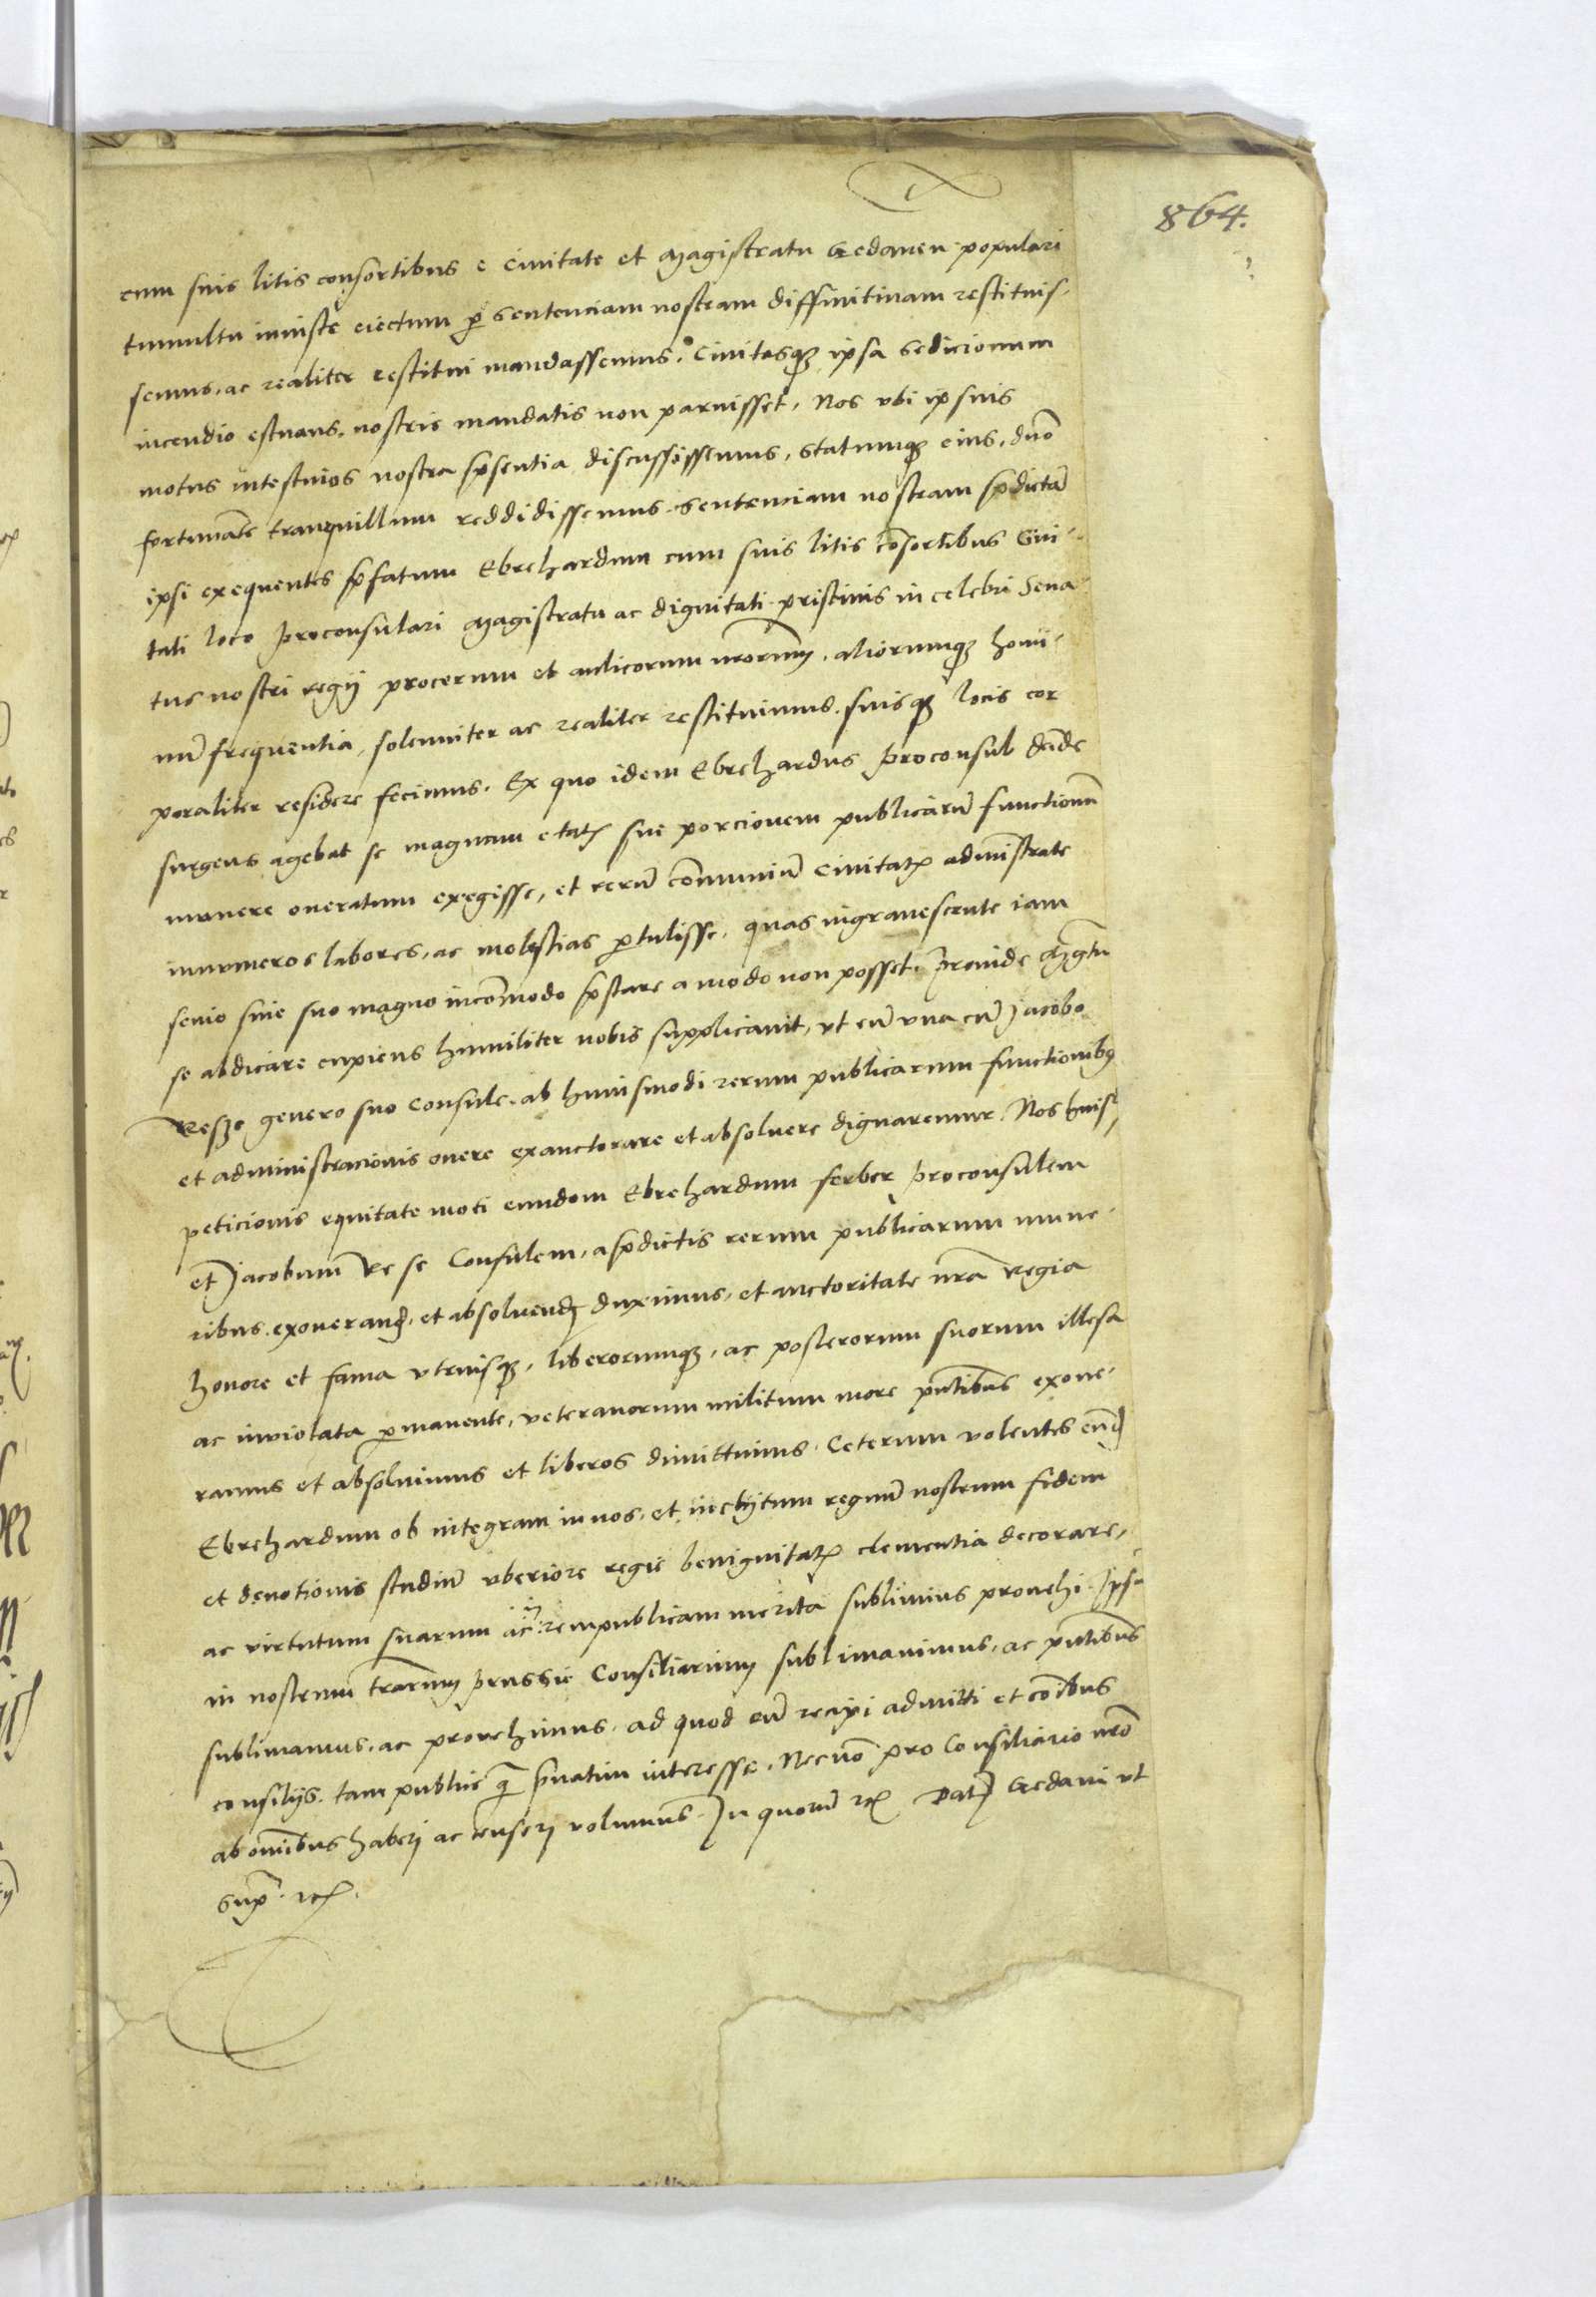 864.
cum suis litis consortibus e Ciuitate et Magistratu Gedanen populari
tumultu iniuste eiectum p sentenciam nostram diffinitiuam restituis-
semus. ac realiter restitui mandassemus. Ciuitasq3 ipsa sedicionum
incendio estuans, nostris mandatis non paruisset. Nos vbi ipsius
motus intestinos nostra p̄sentia discussissemus, statumq3 eius, duo
fortunate tranquillum reddidissemus. sentenciam nostram p̄dictā
ipsi exequentes p̄fatum Ebrehardum cum suis litis cōsortibus Ciui-
tati loco proconsulari Magistratu ac dignitati pristinis in celebri Sena
tus nostri regij procerum et aulicorum nr̄orum, aliorumq3 homi-
nū frequentia, solenniter ac realiter restituimus. suisq3 locis cor
poraliter residere fecimus. Ex quo idem Ebrehardus proconsul deinde
surgens agebat se magnam etatis sue porcionem publicarū functionū
munere oneratum exegisse, et rerū cōmuniū Ciuitatis administrate
innumeros labores, ac molestias p̱tulisse. quas ingrauescente iam
senio sine suo magno incōmodo p̄stare a modo non posset. Proinde Mgr̄tu
se abdicare cupiens humiliter nobis supplicauit, vt eū vna cū Jacobo
Resze genero suo consule. ab huiusmodi rerum publicarum functionibus
et administracionis onere exauctorare et absoluere dignaremur. Nos huius
peticionis equitate moti eundem Ebrehardum Ferber proconsulem
et Jacobum Rese Consulem, a p̄dictis rerum publicarum mune-
ribus. exonerand. et absoluend duximus, et auctoritate nr̄a Regia
honore et fama vtriusq3. liberorumq3. ac posterorum suorum illesa
ac inuiolata p̱manente, veteranorum militum more pn̄tibus exone-
ramus et absoluimus et liberos dimittimus. Ceterum volentes eund
Ebrehardum ob integram in nos, et inclytum regnū nostrum fidem
et deuotionis studiū vberiore regie benignitatis clementia decorare,
ac virtutum suarum ac in rempublicam merita sublimius prouehi. Ipsū
in nostrum terrarum Prussie Consiliarium sublimauimus, ac pn̄tibus
sublimamus. ac prouehimus. ad quod eū recipi admitti et cōibus
consilijs. tam publice q̄ priuatim interesse. Necnō pro Consiliario nr̄o
ab om̄ibus haberi ac censeri volumus. In quorū etc. Dat Gedani vt
supra etc.